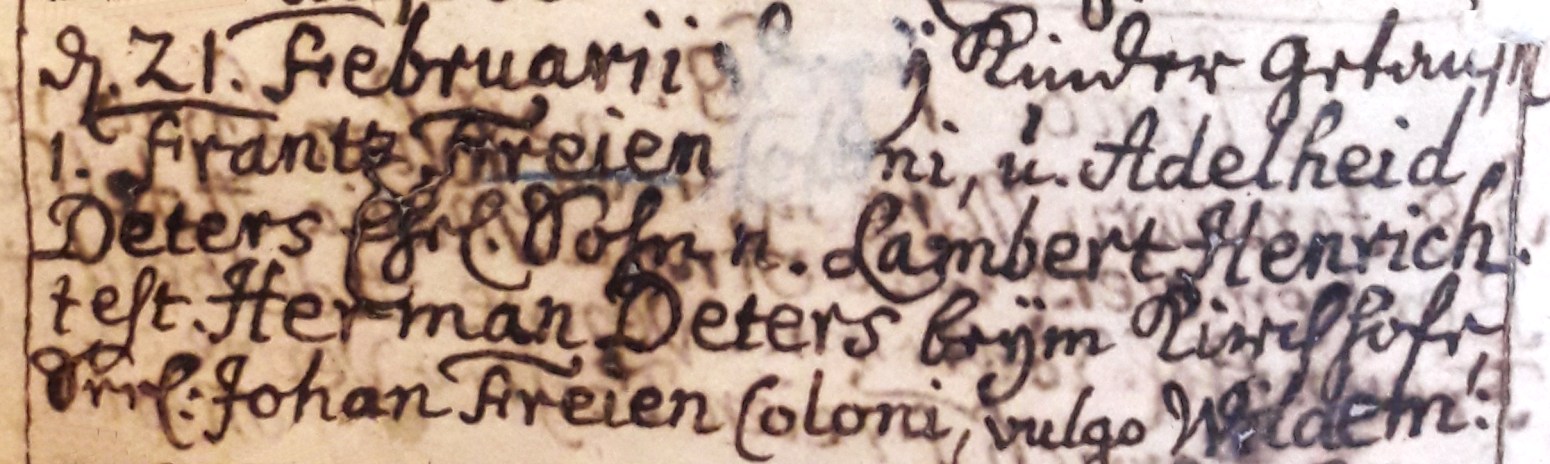 d. 21. Februarii Kinder getauft
1. Frantz Freien ni, u. Adelheid
Deters Ehel. Sohn n. Lambert Henrich.
test. Herman Deters beÿm Kirchhofe,
Johan Freien Coloni, vulgo